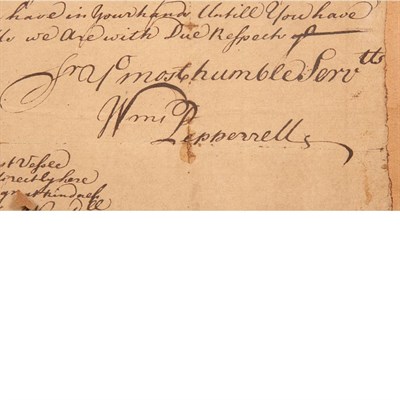 have in Your hands Untill You have
we Are with Due Respects
Sr Yr most humble Servtts
Wm Pepperrell
st Vessell
directly here
great kindness